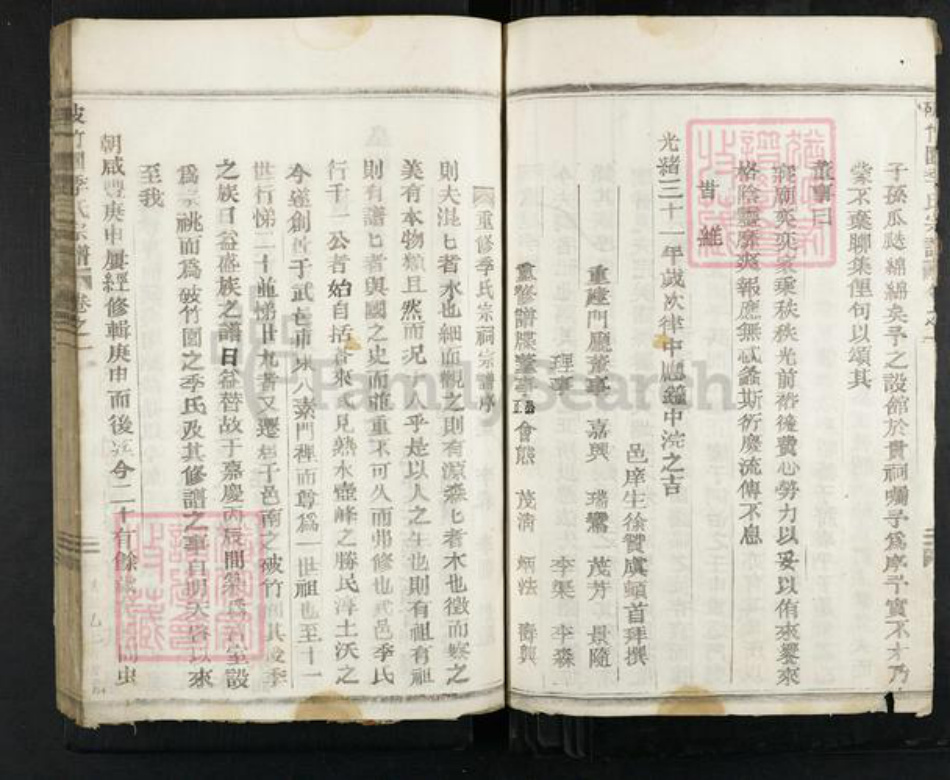 子孫瓜瓞綿綿矣予之設館於貴祠囑予爲序予實不才乃
棠不棄聊集俚句以頌其
董事曰
寢廟奕奕家乘秩秩光前裕後費心勞力以妥以侑來饗來
格陰靈靡爽報應無忒螽斯衍慶流傳不息
告
光緒三十一年歲次律中 鐘中浣之吉
邑庠生徐贊虞頓首拜撰
重建門廳董事 嘉興 瑞 茂芳 景隨
理事 李榘 李淼
重修譜牒董事 會態 茂清 炳法 壽興
重修季氏宗祠宗譜序
則夫混匕者水也細而觀之則有源森匕者木也徵而察之
美有本物類且然而况 人乎是以人之生也則有祖有祖
則有譜匕者與國之史而並重不可久而弗修也武邑季氏
行千一公者始自括蒼來 見熱水壺峰之勝民淳土沃之
今遂創 于武邑市東八素門禪而尊爲一世祖也至十一
世行悌二十並悌廿九者又遷 于邑南之破竹 其後季
之族日益盛族之譜日益替故于嘉慶丙辰間 室設
爲 祧而爲破竹園之季氏及其修譜之事自明 以來
至我
朝咸豐庚申屢經修輯庚申而後 今二十有餘 虫
破竹園季氏宗譜 卷之一
FamilySearch